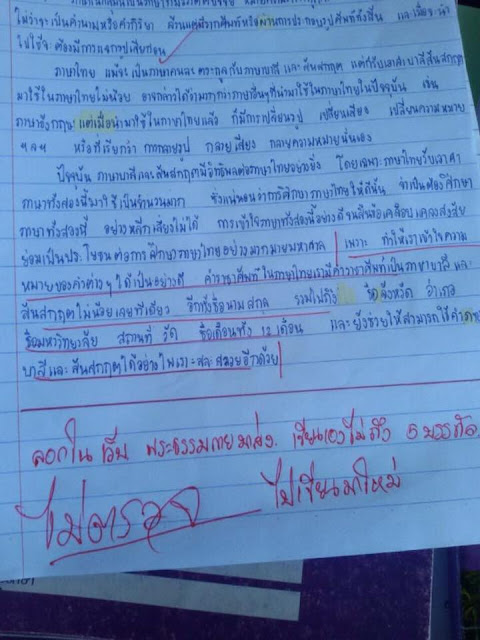 ไม่ว่าจะเป็นคำนามหรือคำกริยา ล้วนแต่มีรากศัพท์หรือผ่านการประกอบรูปศัพท์ทั้งสิ้น และเมื่อจะนำ
ไปใช้จะต้องมีการแจกรูปเสียก่อน
ภาษาไทย แม้จะเป็นภาษาคนละตระกูลกับภาษาบาลี และ สันสกฤต แต่ก็รับเอาคำบาลีสันสกฤต
มาใช้ในภาษาไทยไม่น้อย อาจกล่าวได้ว่ามากกว่าภาษาอื่นๆที่นำมาใช้ในภาษาไทยในปัจจุบัน เช่น
ภาษาอังกฤษ แต่เมื่อนำมาใช้ในภาษาไทยแล้ว ก็มีการเปลี่ยนรูป เปลี่ยนเสียง เปลี่ยนความหมาย
ฯลฯ หรือที่เรียกว่า การกลายรูป กลายเสียง กลายความหมายนั่นเอง
ปัจจุบัน ภาษาบาลีและสันสกฤตมีอิทธิพลต่อภาษาไทยอย่างยิ่ง โดยเฉพาะภาษาไทยรับเอาคำ
ภาษาทั้งสองนี้มาใช้เป็นจำนวนมาก ซึ่งแน่นอนว่าการศึกษาภาษาไทยให้ดีนั้น จำเป็นต้องศึกษา
ภาษาทั้งสองนี้ อย่างหลีกเลี่ยงไม่ได้ การเข้าใจภาษาทั้งสองนี้อย่างดีจนสิ้นข้อเคลือบแคลงสงสัย
ย่อมเป็นประโยชน์ต่อการศึกษาภาษาไทยอย่างมากมายมหาศาล เพราะ ทำให้เราเข้าใจความ
หมายของคำต่างๆได้เป็นอย่างดี คำราชาศัพท์ในภาษาไทยเรามีคำราชาศัพท์เป็นภาษาบาลี และ
สันสกฤตไม่น้อยเลยทีเดียว อีกทั้งชื่อนามสกุล รวมไปถึง วัด จังหวัด อำเภอ
ชื่อมหาวิทยาลัย สถานที่ วัด ชื่อเดือนทั้ง 12 เดือน และยังช่วยให้สามารถใช้คำ
บาลี และ สันสกฤตได้อย่างไพเราะสละสลวยอีกด้วย
ลอกใน เว็บ พระธรรมกายมาส่ง. เขียนเองไม่ถึง 5 บรรทัด
ไม่ตรวจ ไปเขียนมาใหม่